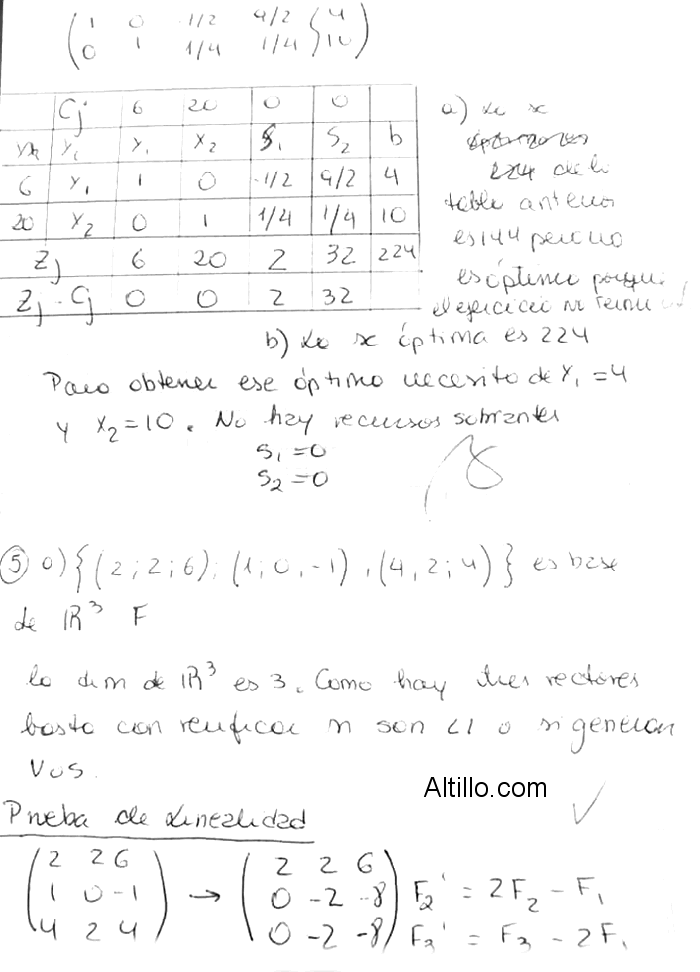 1 0 -1/2 9/2 4
0 1 1/4 1/4 10
Cj 6 20 0 0
xk x1 x2 S1 S2 b
6 x1 1 0 -1/2 9/2 4
20 x2 0 1 1/4 1/4 10
Zj 6 20 2 32 224
Zj - Cj 0 0 2 32
a) La sc
224 de la
tabla anterior
es 144 pero no
es óptimo porque
el ejercicio no
b) La sc óptima es 224
Para obtener ese óptimo necesito de x1 = 4
y x2 = 10. No hay recursos sobrantes
S1 = 0
S2 = 0
5 a) {(2; 2; 6); (1; 0, -1), (4, 2; 4)} es base
de ℝ³ F
la dim de ℝ³ es 3. Como hay tres vectores
basta con verificar si son LI o si generan
Vos.
Altillo.com
Prueba de Linealidad
2 2 6 → 2 2 6
1 0 -1 0 -2 -8 F2' = 2F2 - F1
4 2 4 0 -2 -8 F3' = F3 - 2F1